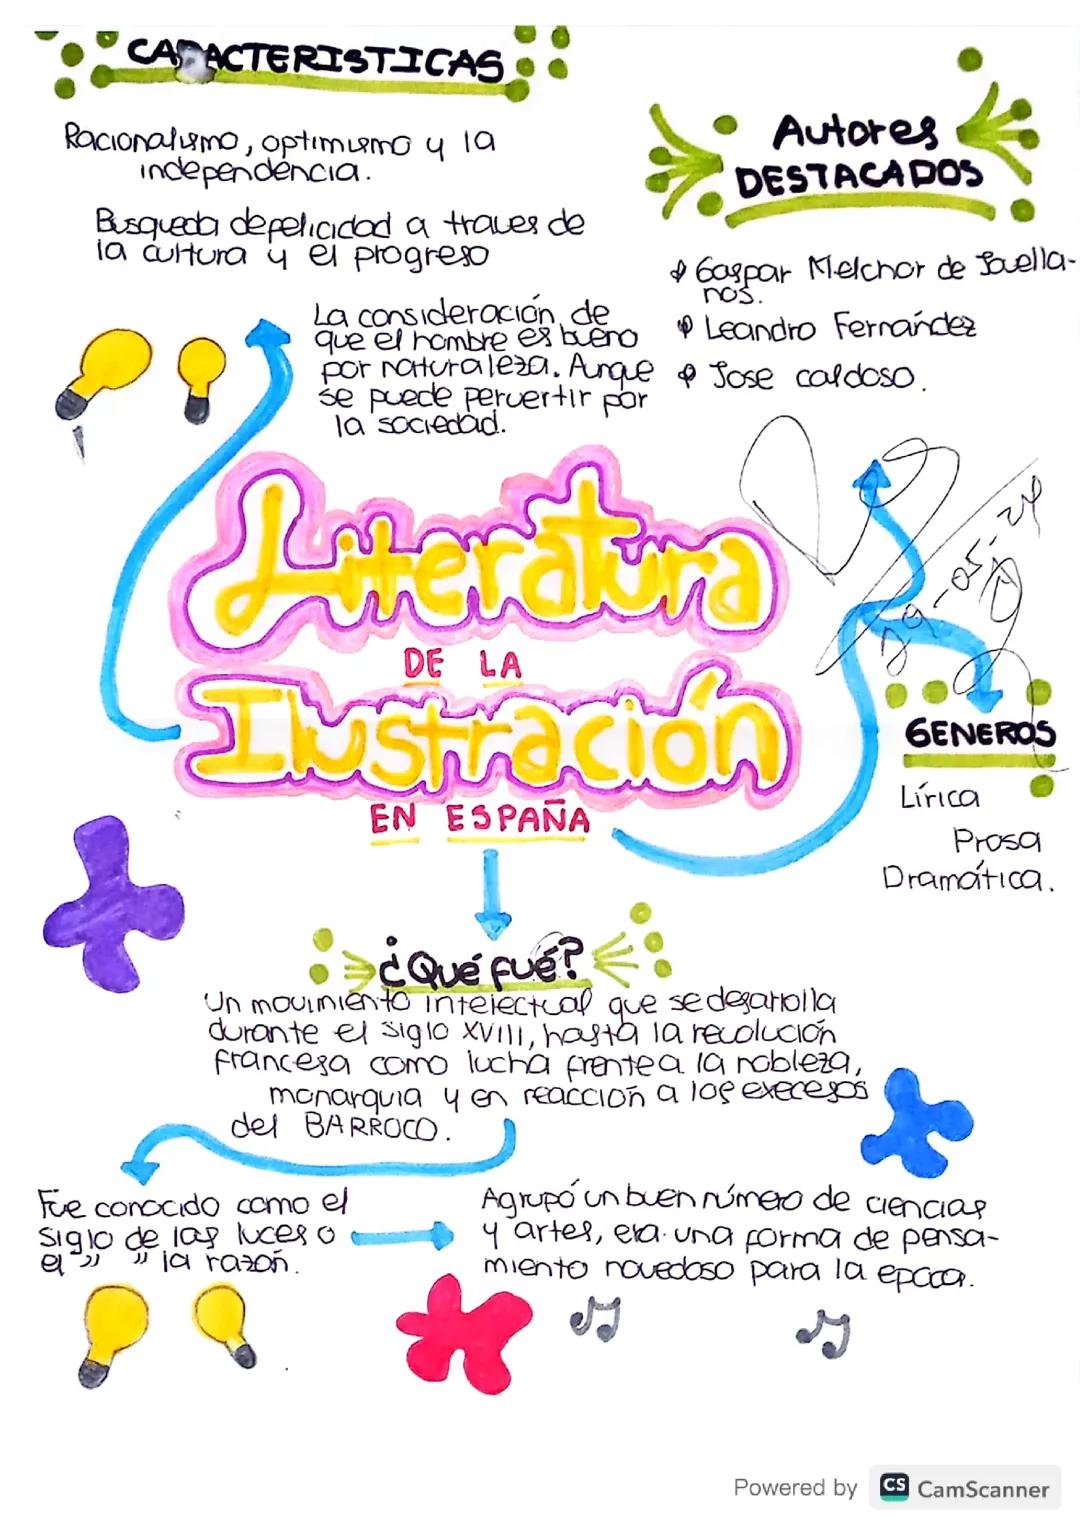 CARACTERISTICAS
Racionalismo, optimismo y la
independencia.
Busqueda de felicidad a traves de
la cultura y el progreso
La consideración de
que el hombre es bueno
por naturaleza. Aunque
se puede pervertir por
la sociedad.
Autores
DESTACADOS
Gaspar Melchor de Jovella-
nos.
Leandro Fernández
Jose caldoso.
29-05-24
Literatura
DE LA
Ilustración
EN ESPAÑA
GENEROS
Lírica
Prosa
Dramática.
¿Qué fué?
Un movimiento intelectual que se desarrolla
durante el siglo XVIII, hasta la revolución
francesa como lucha frente a la nobleza,
monarquia y en reacción a los execesos
del BARROCO.
Fue conocido como el
siglo de las luces o
el " " la razón.
Agrupó un buen número de ciencias
y artes, era una forma de pensa-
miento novedoso para la epoca.
Powered by CS CamScanner